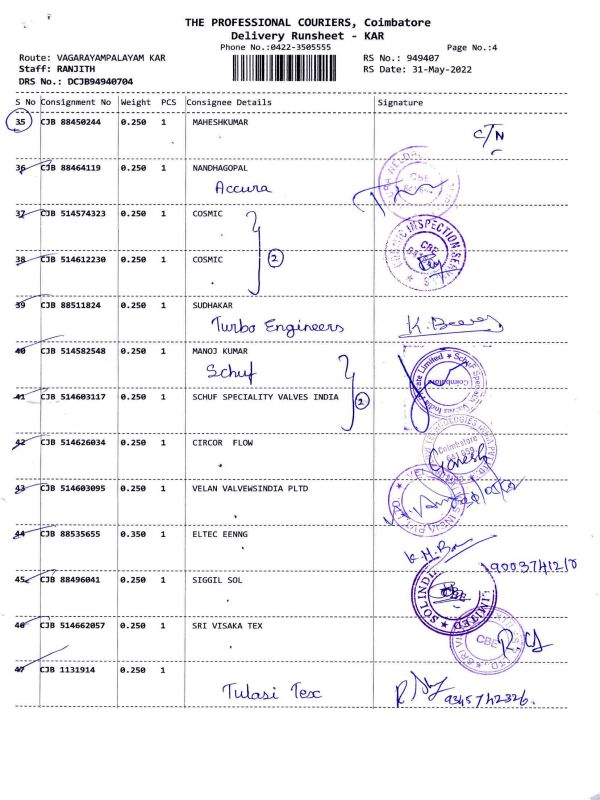 THE PROFESSIONAL COURIERS, Coimbatore
Delivery Runsheet - KAR
Phone No.:0422-3505555
Page No.:4
Route: VAGARAYAMPALAYAM KAR
RS No.: 949407
Staff: RANJITH
RS Date: 31-May-2022
DRS No.: DCJB94940704
S No Consignment No Weight PCS Consignee Details Signature
35 CJB 88450244 0.250 1 MAHESHKUMAR
C/N
36 CJB 88464119 0.250 1 NANDHAGOPAL
Accura
CBE
37 CJB 514574323 0.250 1 COSMIC
INSPECTION
CBE
38 CJB 514612230 0.250 1 COSMIC
2
39 CJB 88511824 0.250 1 SUDHAKAR
Turbo Engineers
40 CJB 514582548 0.250 1 MANOJ KUMAR
Schuf
Coimbatore
41 CJB 514603117 0.250 1 SCHUF SPECIALITY VALVES INDIA
2
42 CJB 514626034 0.250 1 CIRCOR FLOW
Coimbatore
Ganesh
43 CJB 514603095 0.250 1 VELAN VALVEWSINDIA PLTD
44 CJB 88535655 0.350 1 ELTEC EENNG
45 CJB 88496041 0.250 1 SIGGIL SOL
SOL INDIA LIMITED
CBE
46 CJB 514662057 0.250 1 SRI VISAKA TEX
CBE
47 CJB 1131914 0.250 1
Tulasi Tex
9345742326.